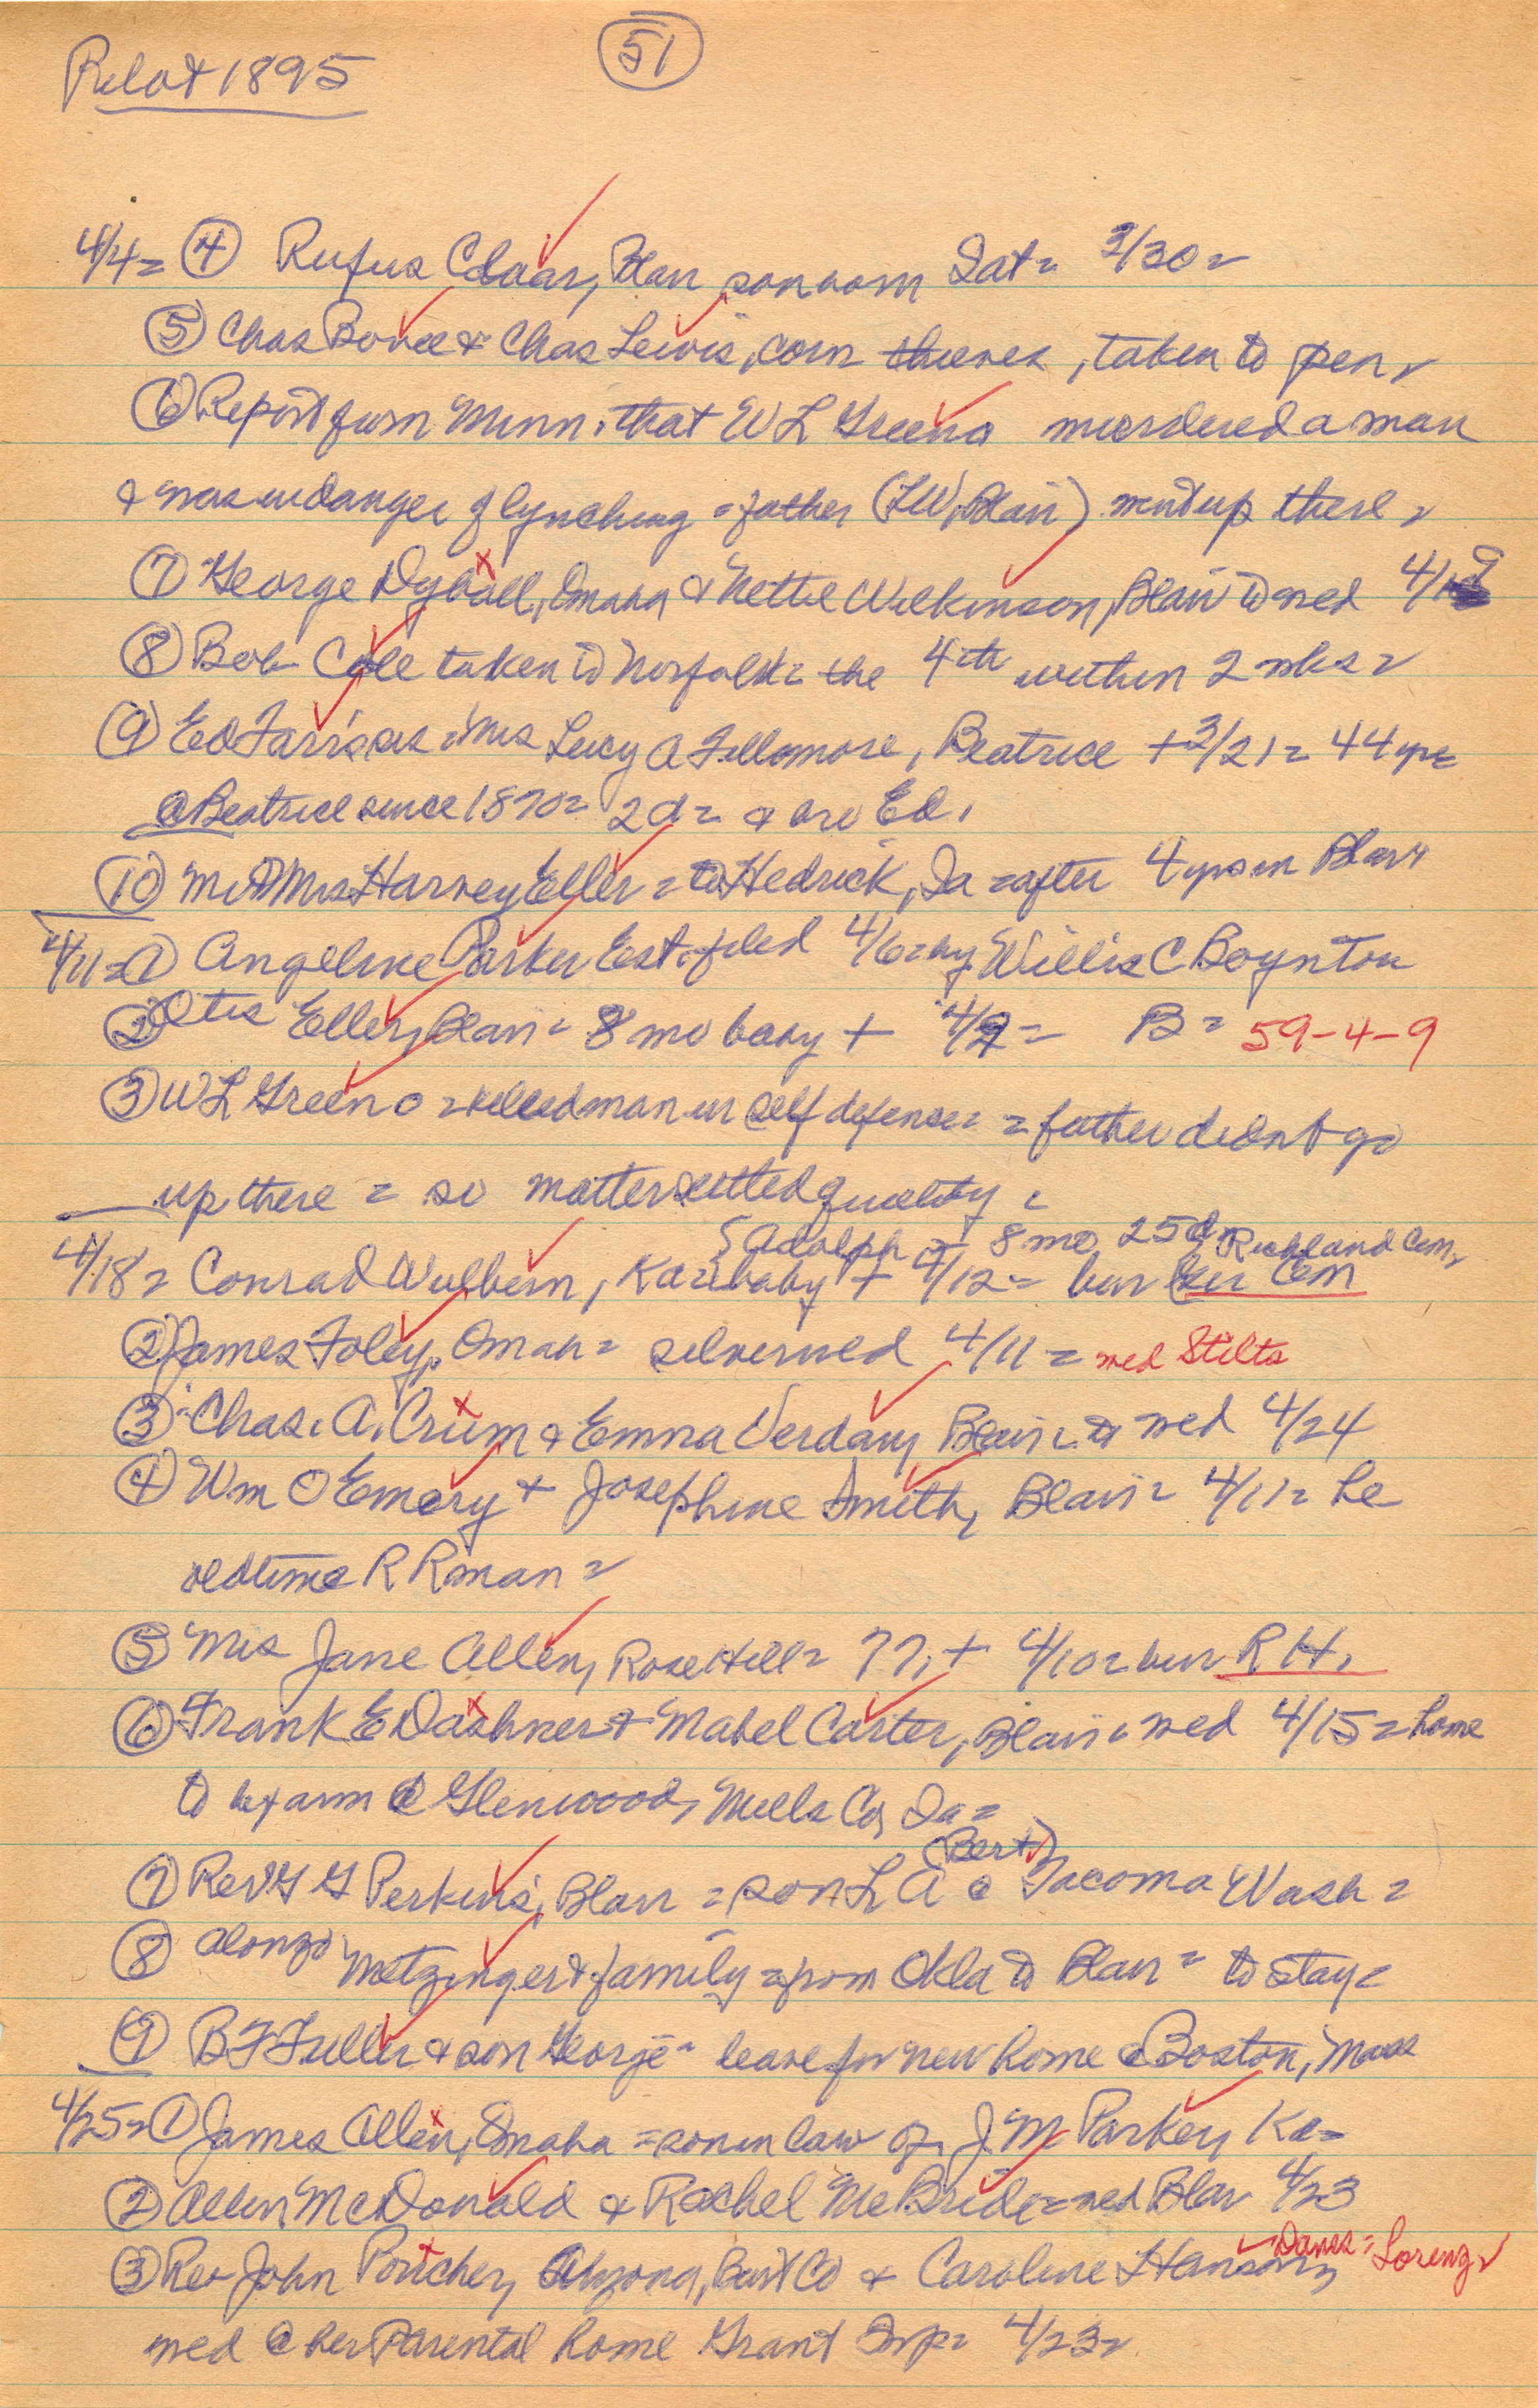 Pilot 1895
51
4/4 = 4 Rufus Claar, Blair son born Sat = 3/30 =
5 Chas Bovee & Chas Lewis, corn thieves, taken to pen =
6 Report from Minn. that W L Greeno murdered a man
& was in danger of lynching = father (L W, Blair) went up there =
7 George Dyball, Omaha & Nettie Wilkinson, Blair to wed 4/
8 Bob Cole taken to Norfolk = the 4th within 2 wks =
9 Ed Farris sis = Mrs Lucy A Fillomore, Beatrice + 3/21 = 44 yrs
@ Beatrice since 1870 = 2 d = & bro Ed.
10 Mr & Mrs Harvey Eller = to Hedrick, Ia = after 4 yrs in Blair
4/11 = 1 Angeline Parker Est. filed 4/6 = by Willis C Boynton
2 Otis Eller, Blair = 8 mo baby + 4/9 = B = 59-4-9
3 W L Greeno = killed man in self defense = = father didnt go
up there = so matter settled quietly =
{Adolph = 8 mo 25 d, Richland Cem,
4/18 = Conrad Wulbern, Ka = baby + 4/12 = bur Ker Cem
2 James Foley, Omah = silver wed 4/11 = wed Stilts
3 Chas. A. Crum & Emma Verdary Blair = to wed 4/24
4 Wm O Emery + Josephine Smith, Blair = 4/11 = he
oldtime R R man =
5 Mrs Jane Allen, Rose Hill = 77, + 4/10 = bur R H,
6 Frank E Dashner & Mabel Carter, Blair = wed 4/15 = home
to be farm @ Glenwood, Mills Co, Ia =
(Bert)
7 Rev G G Perkins, Blair = son L A @ Tacoma Wash =
8 Alonzo Metzinger & family = from Okla to Blair = to stay =
9 B F Fuller & son George = leave for new home @ Boston, Mass
4/25 = 1 James Allen, Omaha = son in law of J. M Parker, Ka =
2 Allen McDonald & Rachel McBride = wed Blair 4/23
Danss = Lorenz
3 Rev John Poucher, Arizona, Burt Co & Caroline Hanson,
wed @ her Parental home Grant Twp = 4/23 =